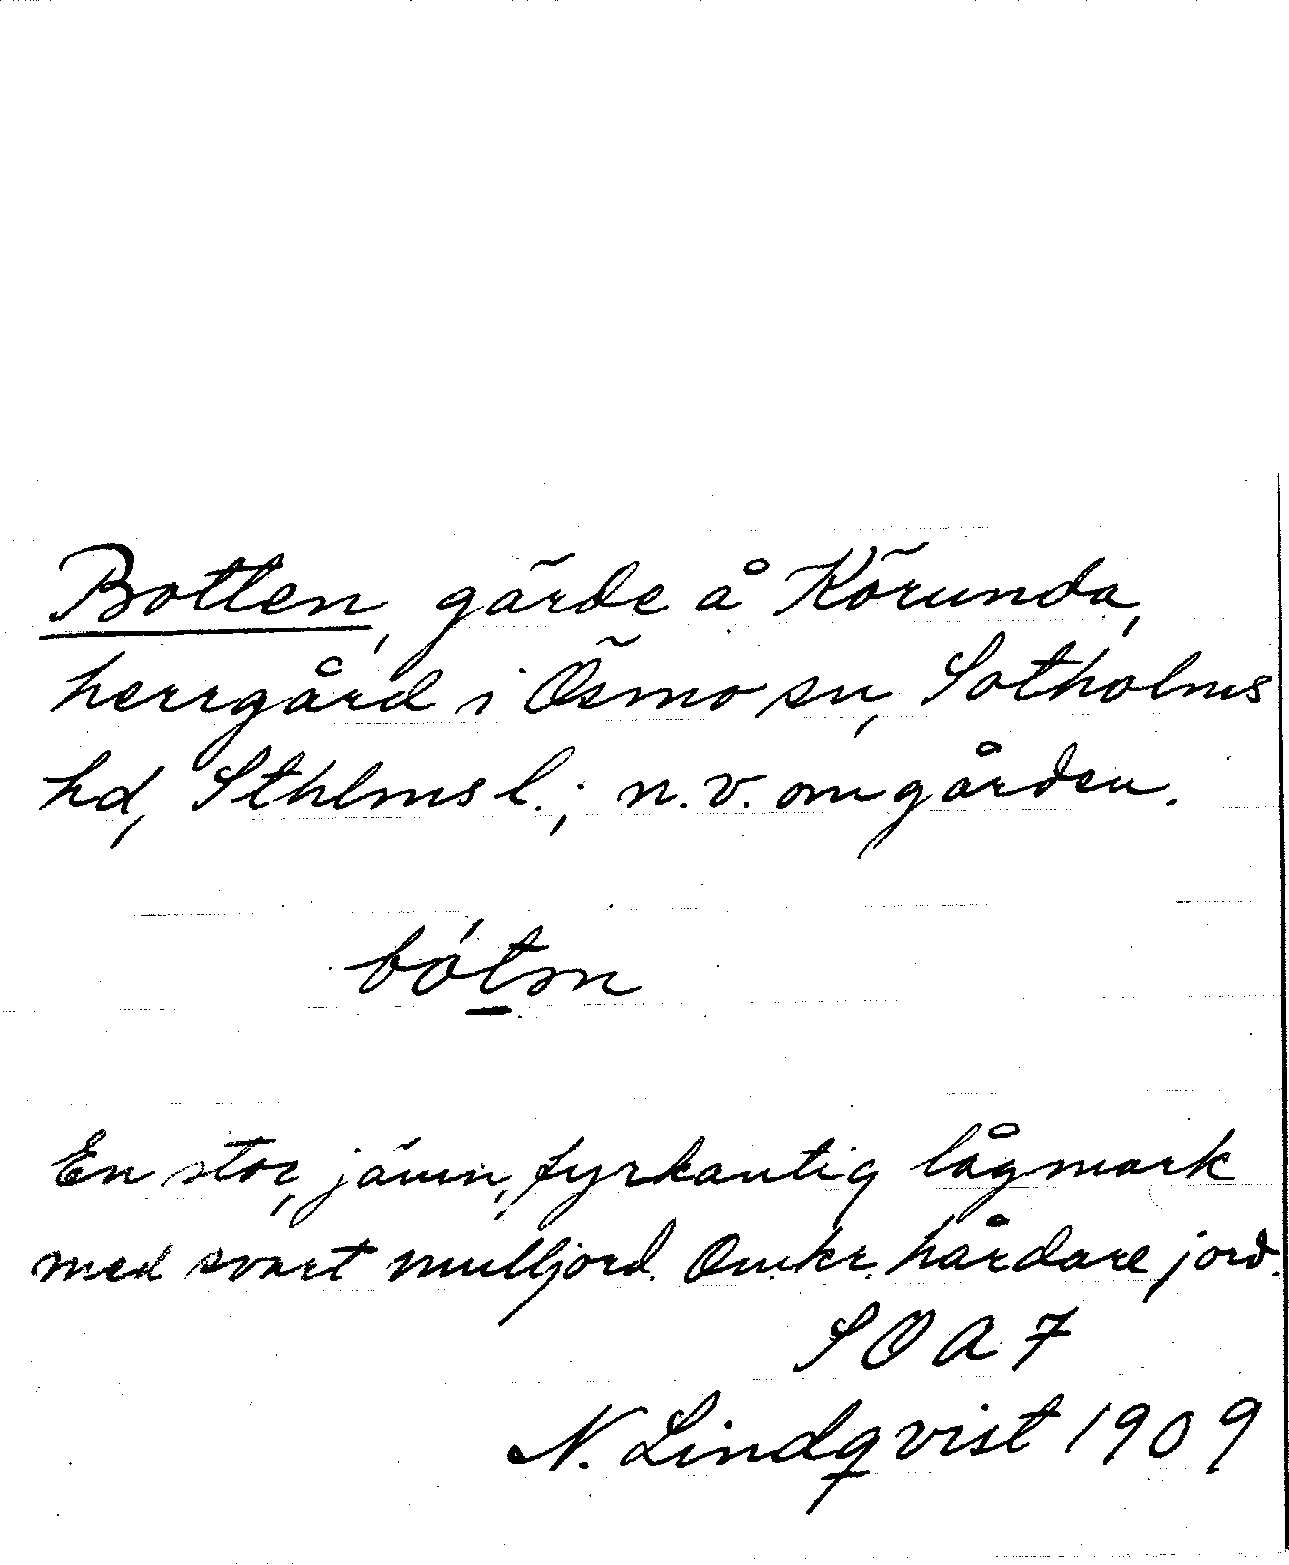 Botten, gärde å Körunda,
herrgård i Ösmo sn, Sotholms
hd, Sthlms l.; n.v. om gården.
bótm
En stor, jämn, fyrkantig lågmark
med svart mulljord. Omkr. hårdare jord.
SOA 7
N. Lindqvist 1909